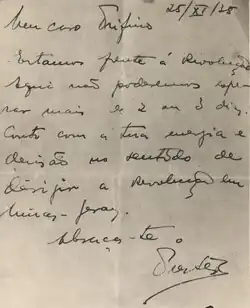 25/XI/35
Meu caro Trifino
Estamos frente á Revolução.
Aqui não poderemos espe-
rar mais de 2 ou 3 dias.
Conto com a tua energia e
decisão no sentido de
dirigir a Revolução em
Minas-Geraes.
Abraça-te o
Prestes